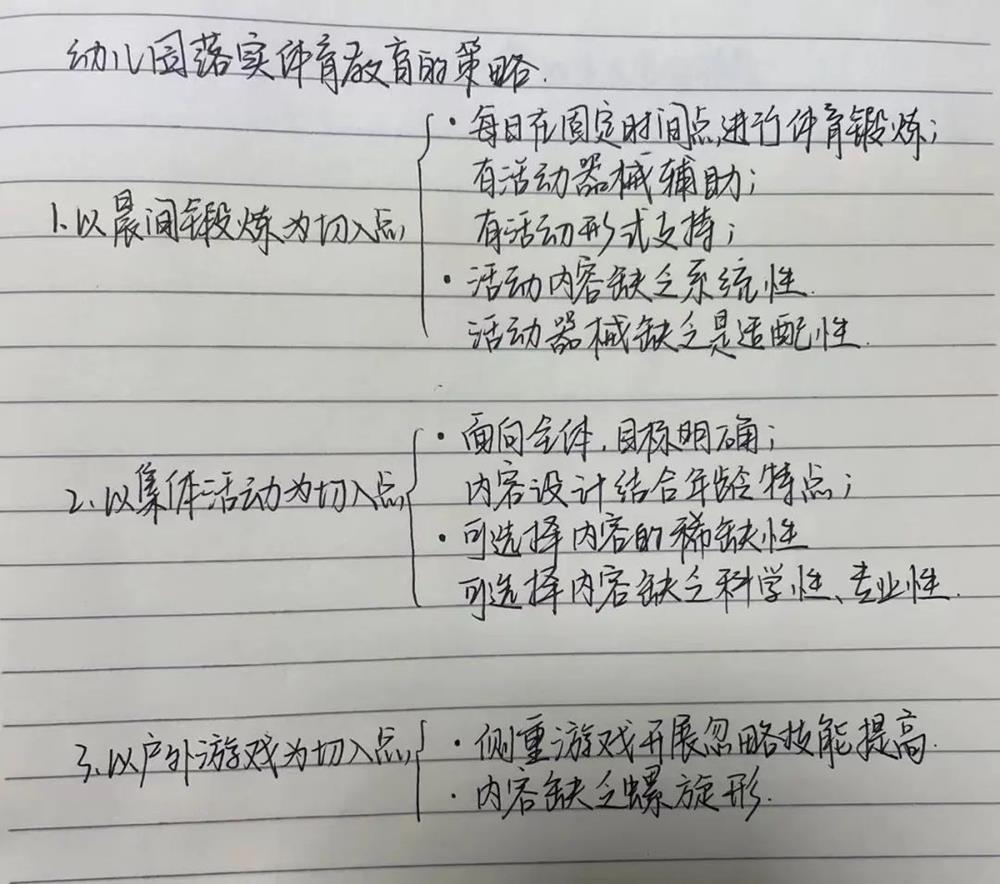 幼儿园落实体育教育的策略.
1.以晨间锻炼为切入点
·每日在固定时间点,进行体育锻炼;
有活动器械辅助;
有活动形式支持;
·活动内容缺乏系统性.
活动器械缺乏是适配性.
2.以集体活动为切入点
·面向全体,目标明确;
内容设计结合年龄特点;
·可选择内容的稀缺性
可选择内容缺乏科学性、专业性.
3.以户外游戏为切入点
·侧重游戏开展忽略技能提高.
·内容缺乏螺旋形.